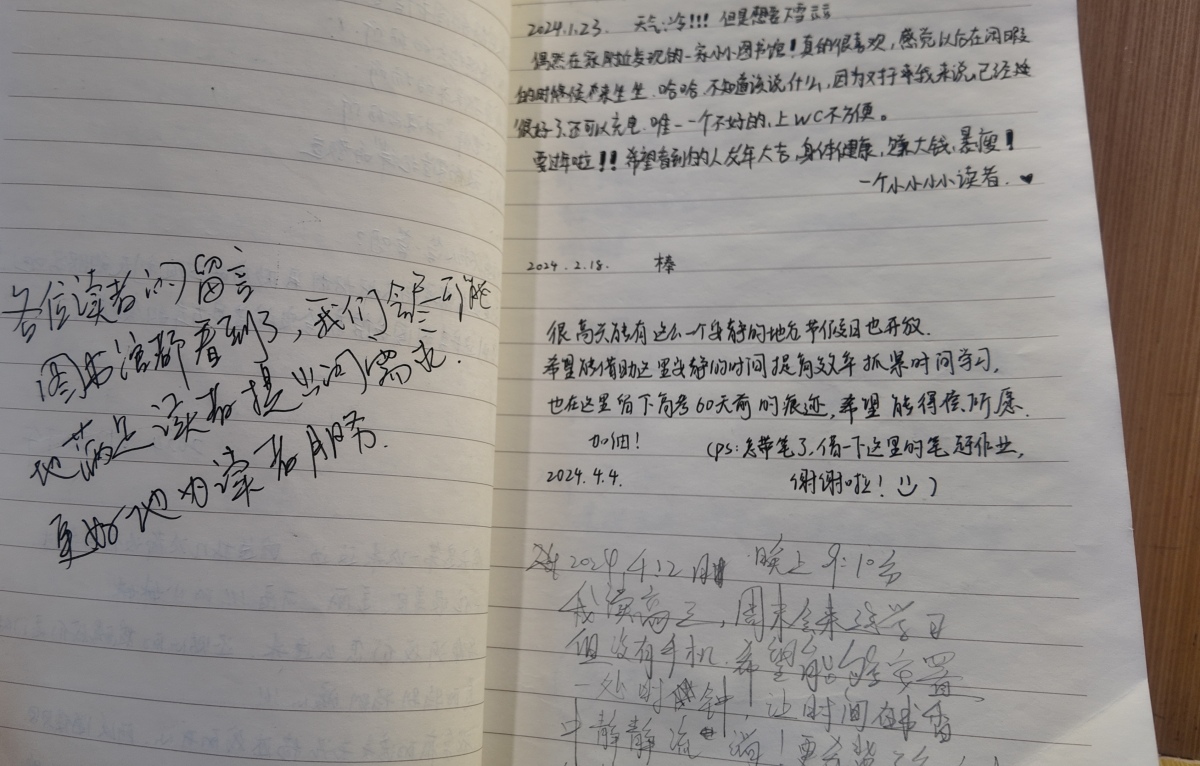 各位读者的留言
图书馆都看到了，我们会尽可能
地满足读者提出的需求.
更好地为读者服务.
2024.1.23. 天气:冷!!! 但是想看下雪
偶然在家附近发现的一家小小图书馆!真的很喜欢,感觉以后在闲暇
的时候来坐坐.哈哈.不知道该说什么,因为对于我来说,已经
很好了,还可以充电.唯一一个不好的,上WC不方便。
要过年啦!!希望看到的人发年大吉,身体健康,赚大钱,暴瘦!
一个小小小小读者.♥
2024.2.18. 棒
很高兴能有这么一个安静的地方节假日也开放.
希望能借助这里安静的时间提高效率抓紧时间学习,
也在这里留下高考60天前的痕迹,希望能得偿所愿.
加油! (ps:忘带笔了,借一下这里的笔写作业,
2024.4.4. 谢谢啦!
2024.4.12 晚上9:10分
我读高三,周末会来这学习
但没有手机.希望能安置
一处时钟,让时间在书香
中静静流淌!